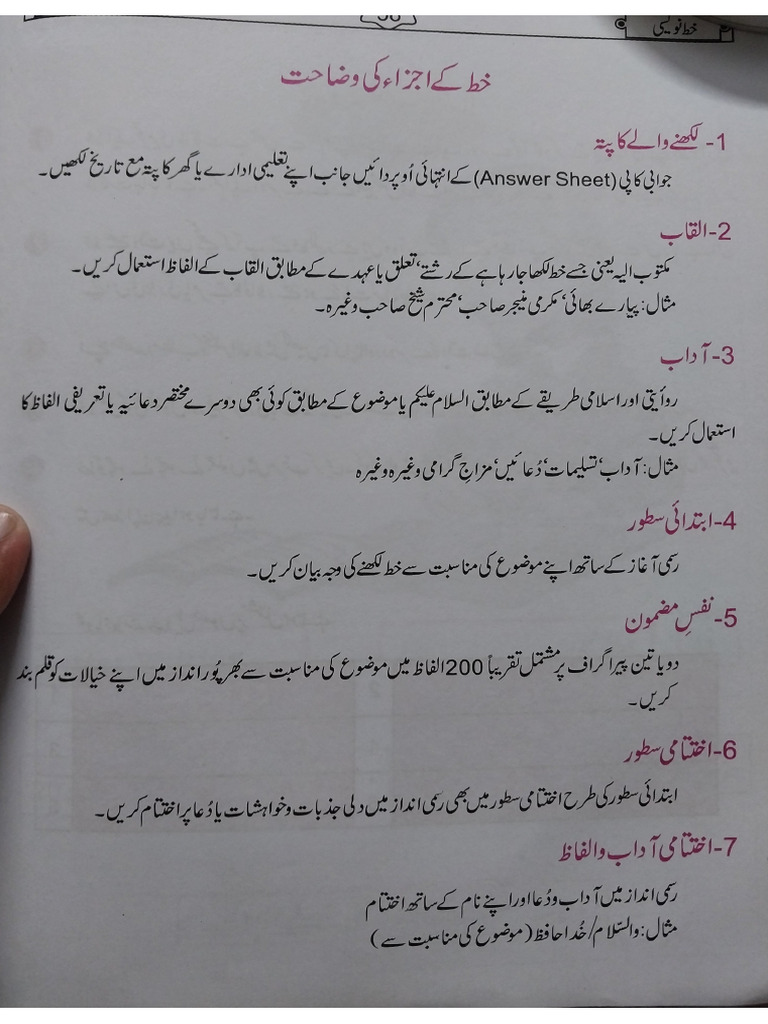 خط نویسی
خط کے اجزاء کی وضاحت
1- لکھنے والے کا پتہ
جوابی کاپی (Answer Sheet) کے انتہائی اُوپر دائیں جانب اپنے تعلیمی ادارے یا گھر کا پتہ مع تاریخ لکھیں۔
2- القاب
مکتوب الیہ یعنی جسے خط لکھا جارہا ہے کے رشتے‘ تعلق یا عہدے کے مطابق القاب کے الفاظ استعمال کریں۔
مثال: پیارے بھائی‘ مکرمی منیجر صاحب‘ محترم شیخ صاحب وغیرہ۔
3- آداب
روأیتی اور اسلامی طریقے کے مطابق السلام علیکم یا موضوع کے مطابق کوئی بھی دوسرے مختصر دعائیہ یا تعریفی الفاظ کا
استعمال کریں۔
مثال: آداب‘ تسلیمات‘ دُعائیں‘ مزاجِ گرامی وغیرہ وغیرہ
4- ابتدائی سطور
رسمی آغاز کے ساتھ اپنے موضوع کی مناسبت سے خط لکھنے کی وجہ بیان کریں۔
5- نفسِ مضمون
دو یا تین پیراگراف پر مشتمل تقریباً 200 الفاظ میں موضوع کی مناسبت سے بھرپُور انداز میں اپنے خیالات کو قلم بند
کریں۔
6- اختتامی سطور
ابتدائی سطور کی طرح اختتامی سطور میں بھی رسمی انداز میں دلی جذبات و خواہشات یا دُعا پر اختتام کریں۔
7- اختتامی آداب و الفاظ
رسمی انداز میں آداب و دُعا اور اپنے نام کے ساتھ اختتام
مثال: والسّلام/خُدا حافظ (موضوع کی مناسبت سے)